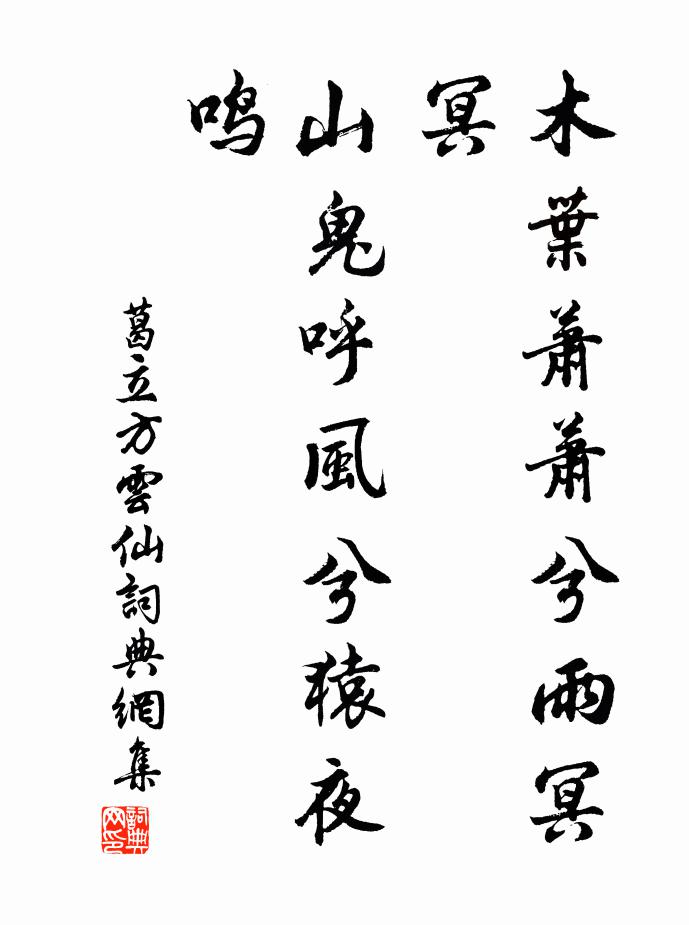 木葉蕭蕭兮雨冥
冥
山鬼呼風兮猿夜
鸣
葛立方雲仙詞典網集
詞典
网印